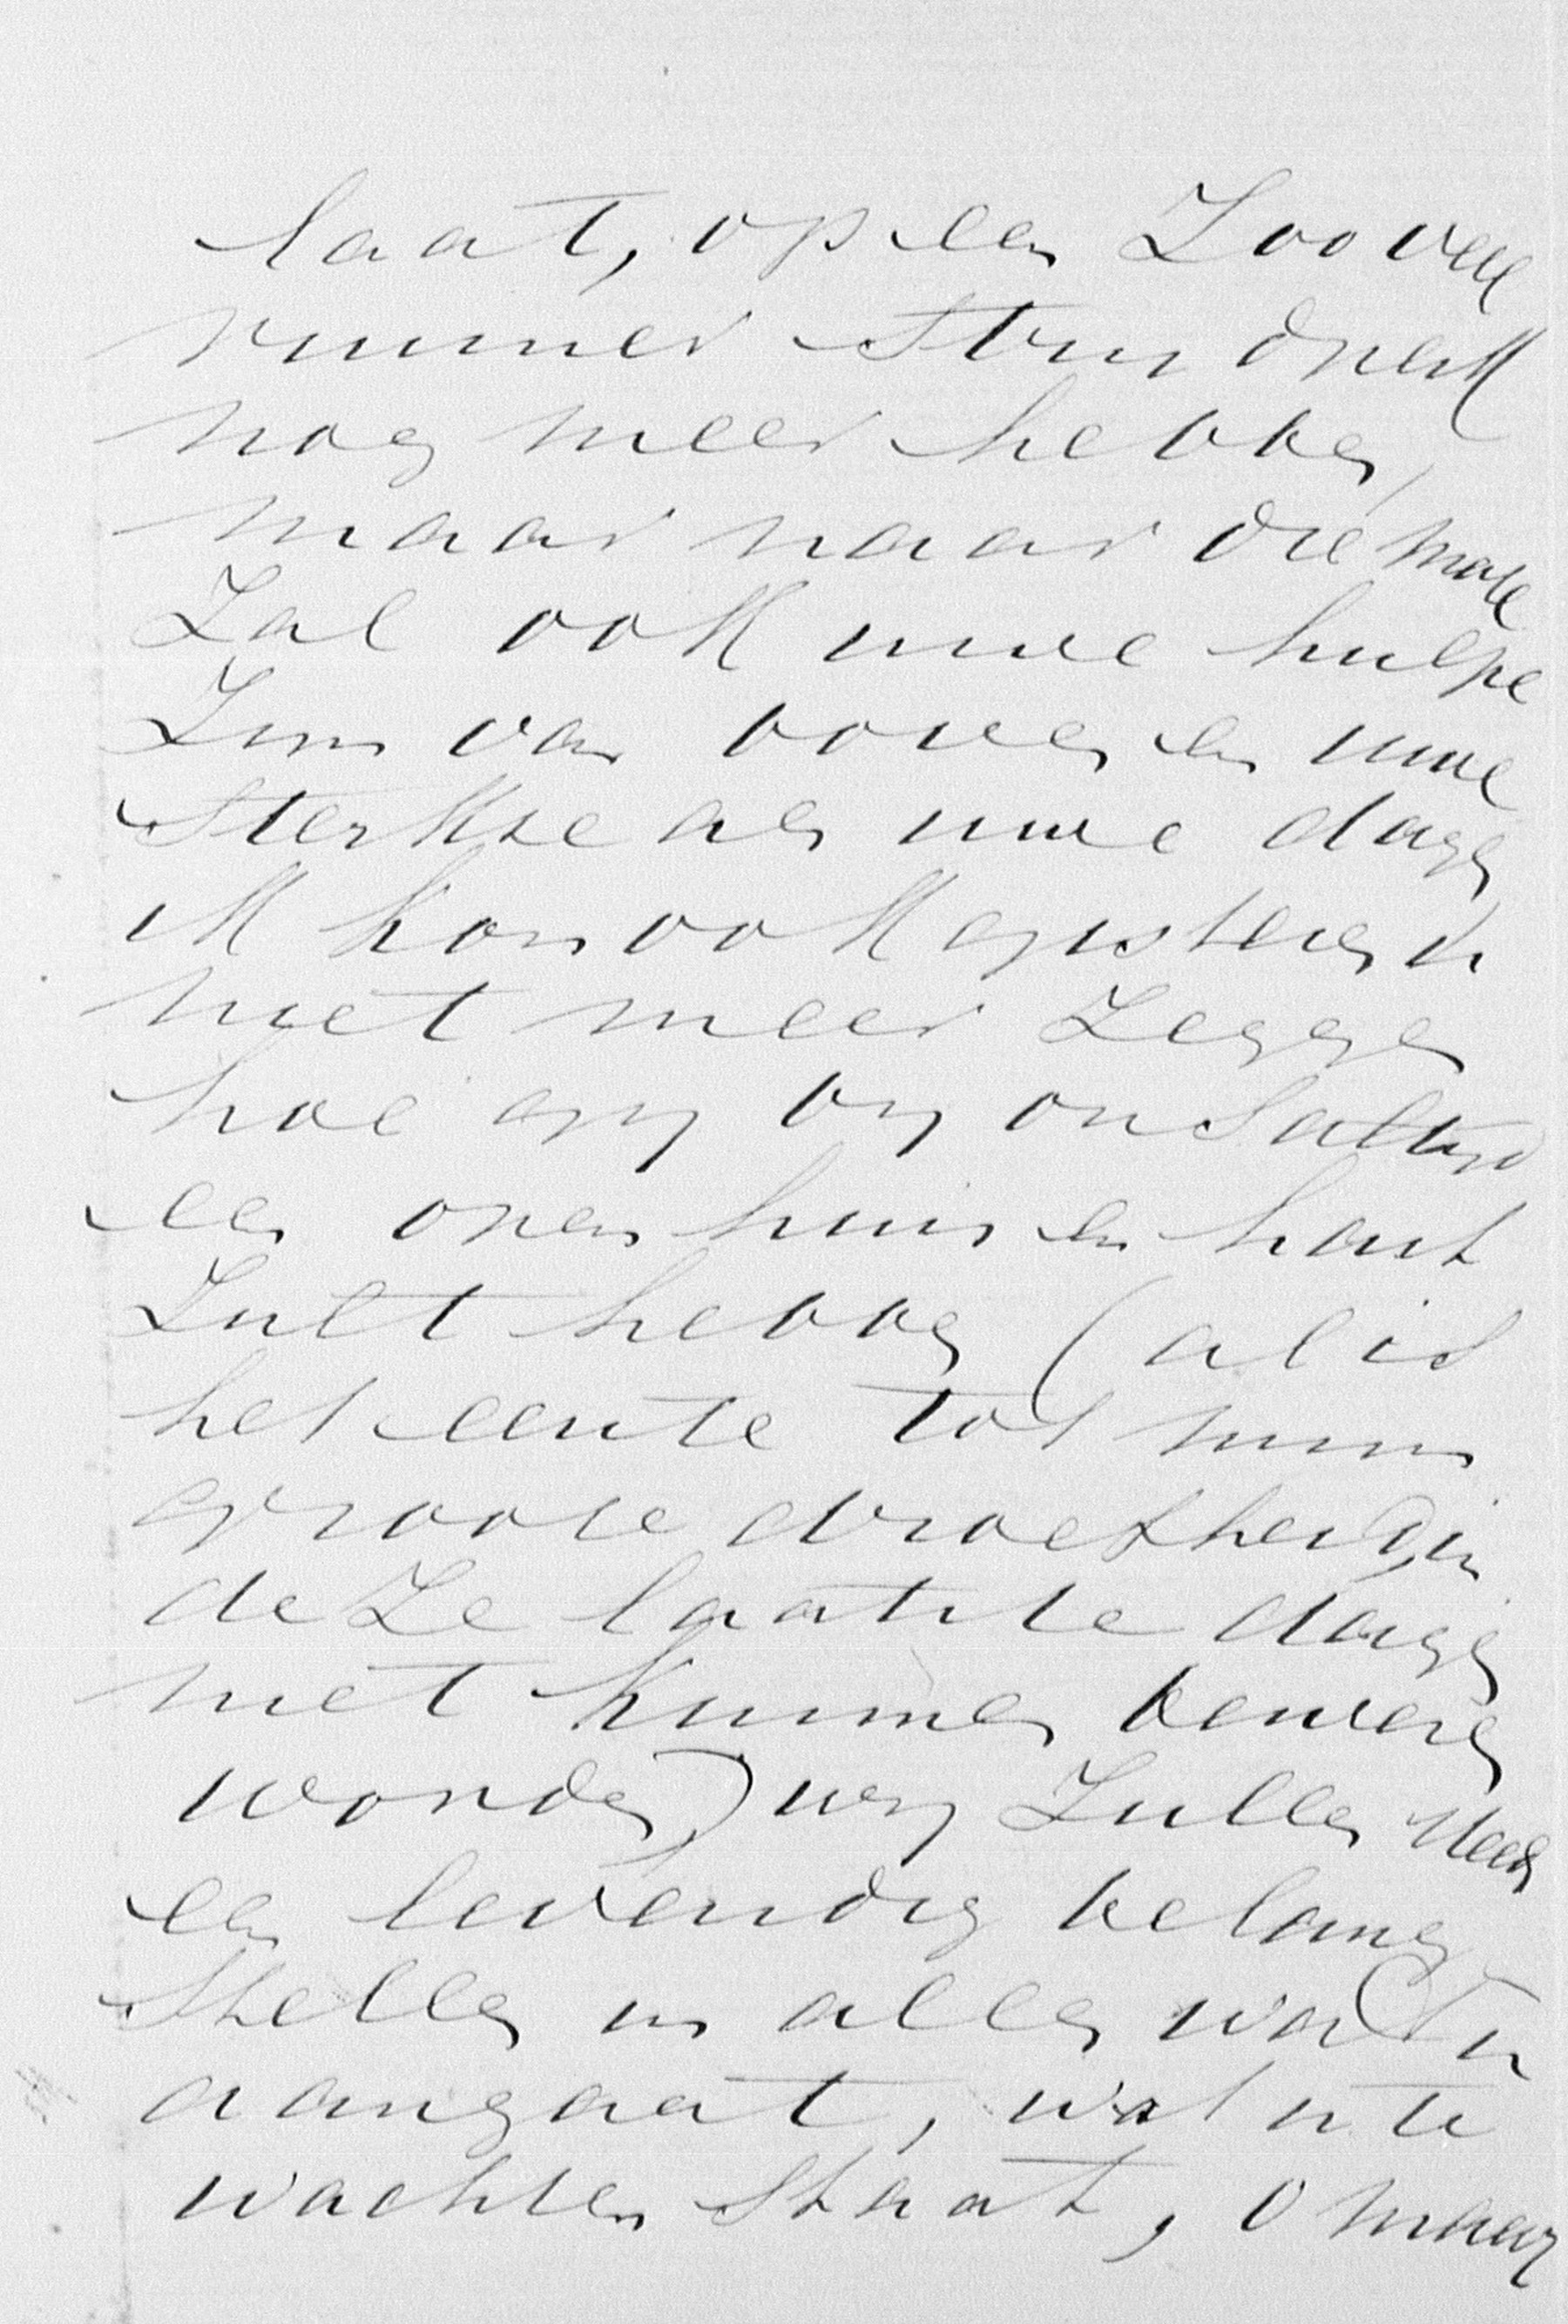 laat, op een Zooveel
ruimer strui dreeft
nog meer hebben,
maar naar die mate
Zal ook uwe hulpe
Zijn van boven en uwe
Sterkte als uwe dagen
ik kon ook gisteren u
niet meer Zeggen
hoe gij bij ons altijd
een open huis en hart
Zult hebben (al is
het eerste tot mijn
groote droefheid, in
deze laatste dagen
niet kunnen bewezen
worden,) wij Zullen steeds
een levendig belang
Stellen in alles wat u
aangaat, wat u te
wachten staat, o maar